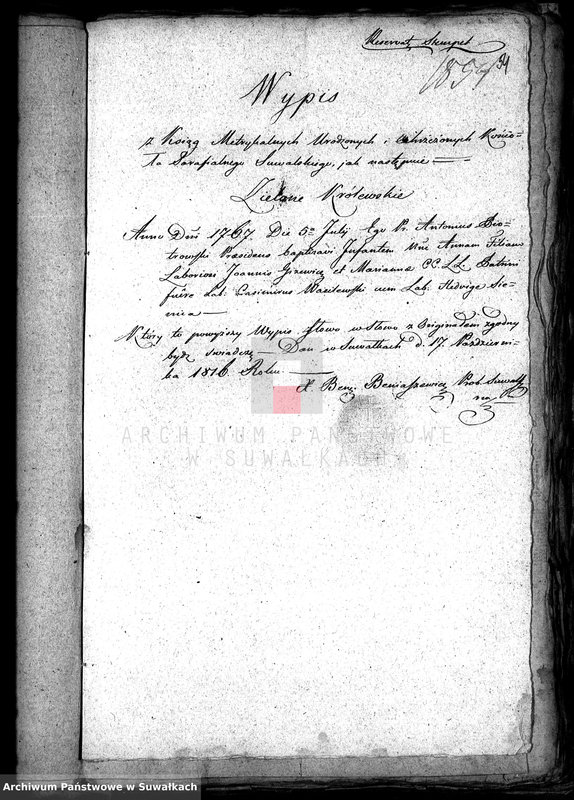 Reservat Stempel
1859
94
Wypis
z Xsiąg Metrykalnych Urodzonych i Chrzczonych Kościo-
ła Parafialnego Suwalskiego, jak następuie
Zielone Królewskie
Anno Dni 1767 Die 5a Julij Ego Fr. Antonius Pio-
trowski Præsidens baptizavi Infantem Nne Annam Filiam
Laboriosi Joannis et Marianna CC. LL. Patrini
fuere Lab. Casimirus Wasilewski cum Lab. Hedvige Sie-
nica
Który to powyższy Wypis słowo w słowo z Originałem zgodny
bydź świadczę Dan w Suwałkach d. 17. Październi-
ka 1816 Roku
X. Ben. Beniaszewicz Prob. Suwalk
ARCHIWUM PAŃSTWOWE
W SUWAŁKACH
Archiwum Państwowe w Suwałkach